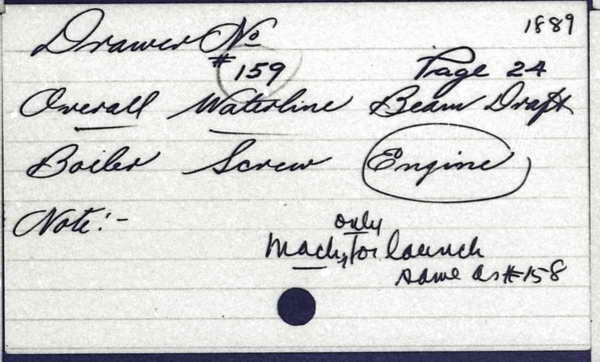 1889
Drawer No
#159 Page 24
Overall Waterline Beam Draft
Boiler Screw Engine
Note:- only
Machy for launch
same as #158